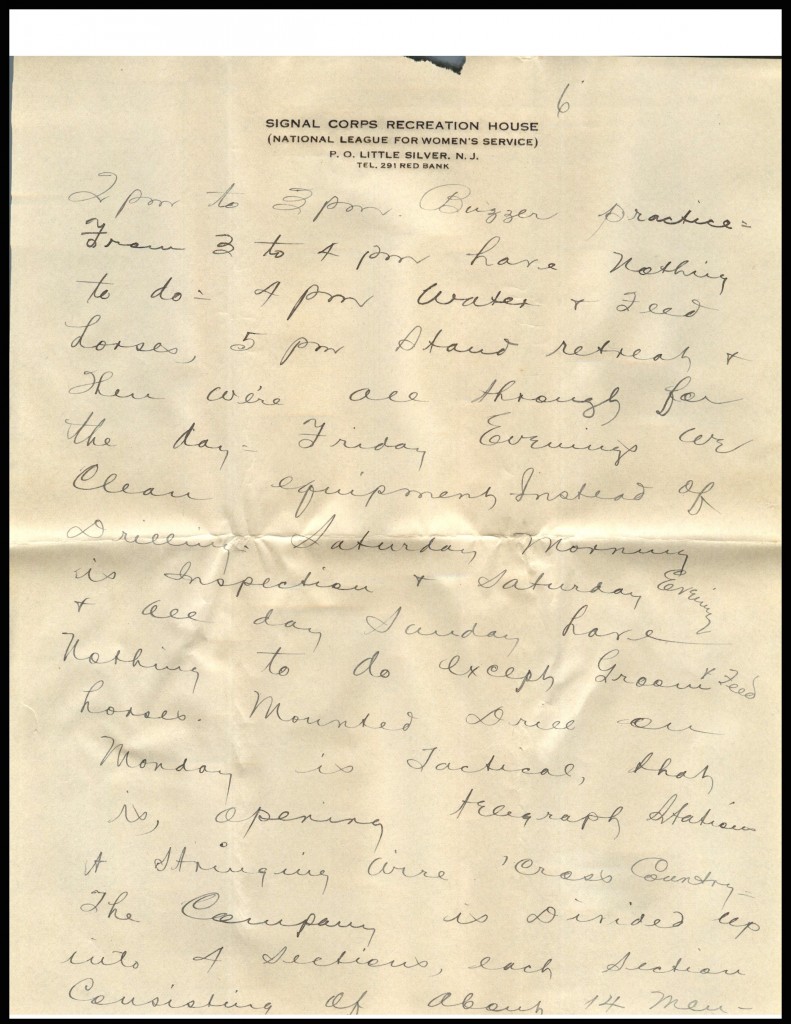 6
SIGNAL CORPS RECREATION HOUSE
(NATIONAL LEAGUE FOR WOMEN'S SERVICE)
P. O. LITTLE SILVER, N. J.
TEL. 291 RED BANK
2 pm to 3 pm. Buzzer practice =
From 3 to 4 pm have Nothing
to do = 4 pm Water + Feed
horses, 5 pm Stand retreat +
Then we're all through for
the day = Friday Evenings we
Clean equipment, Instead of
Drilling. Saturday Morning
is Inspection + Saturday Evening
+ all day Sunday have
Nothing to do except Groom + Feed
horses. Mounted Drill on
Monday is Tactical, that
is, opening telegraph Stations
+ Stringing Wire 'Cross Country =
The Company is Divided up
into 4 Sections, each Section
Consisting of About 14 Men -